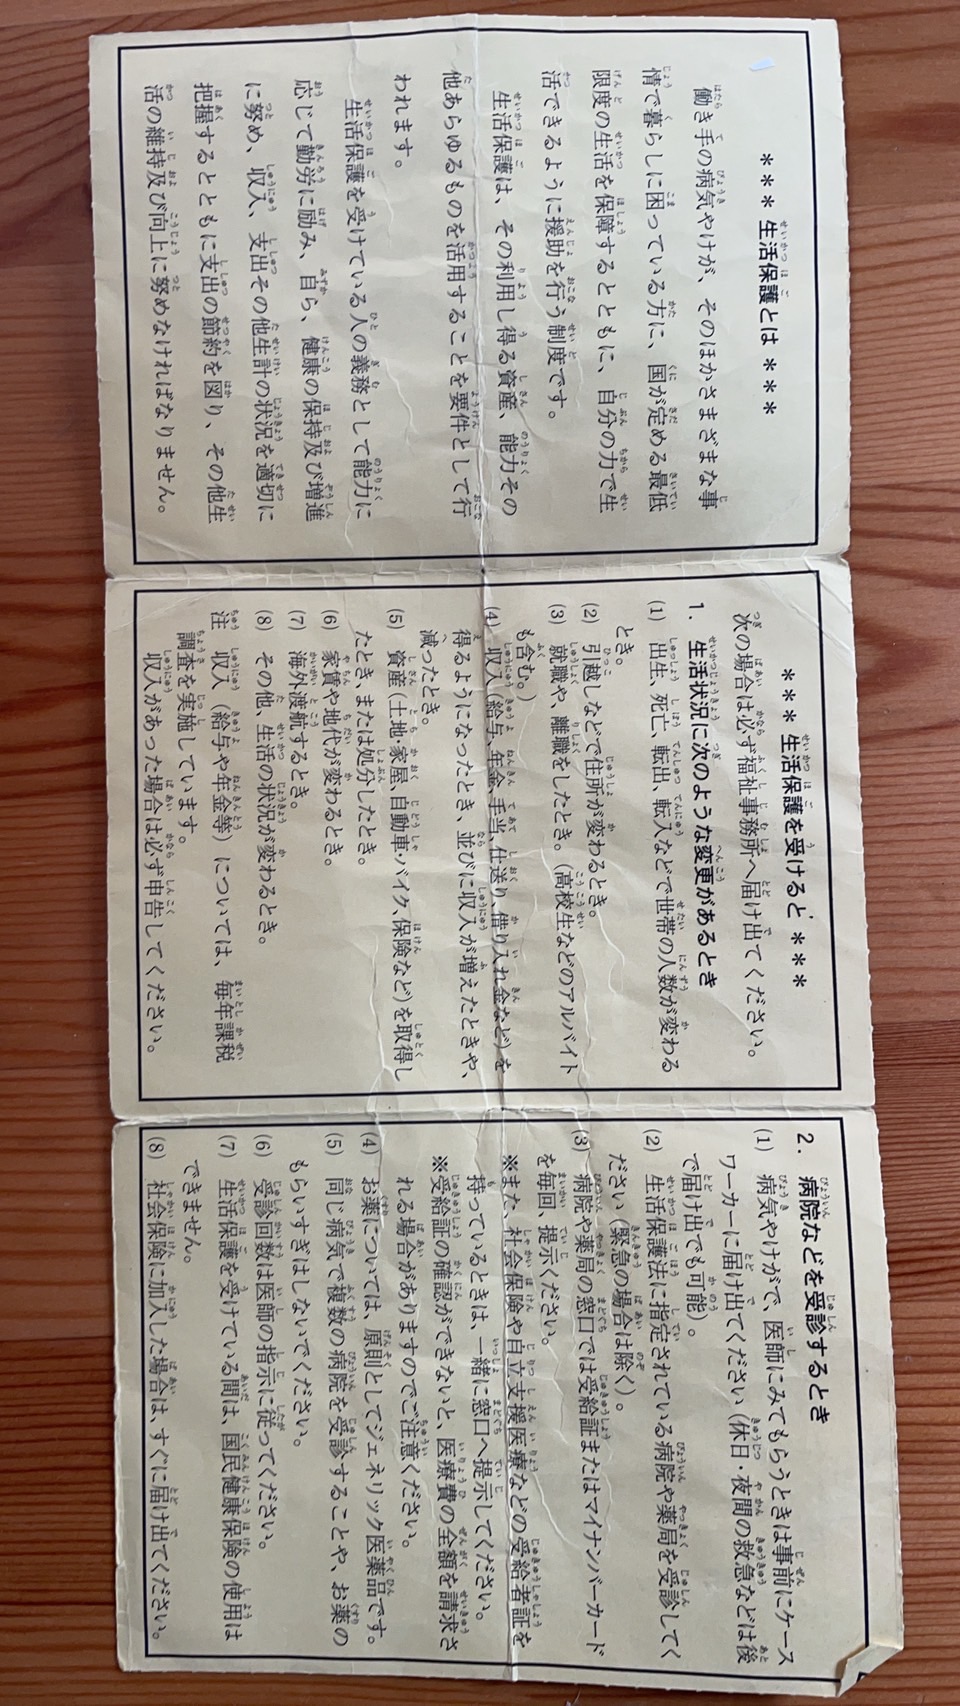 ＊＊＊ 生活保護とは ＊＊＊
働き手の病気やけが、そのほかさまざまな事
情で暮らしに困っている方に、国が定める最低
限度の生活を保障するとともに、自分の力で生
活できるように援助を行う制度です。
生活保護は、その利用し得る資産、能力その
他あらゆるものを活用することを要件として行
われます。
生活保護を受けている人の義務として能力に
応じて勤労に励み、自ら、健康の保持及び増進
に努め、収入、支出その他生計の状況を適切に
把握するとともに支出の節約を図り、その他生
活の維持及び向上に努めなければなりません。
＊＊＊ 生活保護を受けると ＊＊＊
次の場合は必ず福祉事務所へ届け出てください。
1. 生活状況に次のような変更があるとき
(1) 出生、死亡、転出、転入などで世帯の人数が変わる
とき。
(2) 引越しなどで住所が変わるとき。
(3) 就職や、離職をしたとき。（高校生などのアルバイト
も含む。）
(4) 収入（給与、年金、手当、仕送り、借り入れ金など）を
得るようになったとき、並びに収入が増えたときや、
減ったとき。
(5) 資産（土地・家屋、自動車・バイク、保険など）を取得し
たとき、または処分したとき。
(6) 家賃や地代が変わるとき。
(7) 海外渡航するとき。
(8) その他、生活の状況が変わるとき。
注 収入（給与や年金等）については、毎年課税
調査を実施しています。
収入があった場合は必ず申告してください。
2. 病院などを受診するとき
(1) 病気やけがで、医師にみてもらうときは事前にケース
ワーカーに届け出てください（休日・夜間の救急などは後
で届け出でも可能）。
(2) 生活保護法に指定されている病院や薬局を受診してく
ださい（緊急の場合は除く）。
(3) 病院や薬局の窓口では受給証またはマイナンバーカード
を毎回、提示ください。
※また、社会保険や自立支援医療などの受給者証を
持っているときは、一緒に窓口へ提示してください。
※受給証の確認ができないと、医療費の全額を請求さ
れる場合がありますのでご注意ください。
(4) お薬については、原則としてジェネリック医薬品です。
(5) 同じ病気で複数の病院を受診することや、お薬の
もらいすぎはしないでください。
(6) 受診回数は医師の指示に従ってください。
(7) 生活保護を受けている間は、国民健康保険の使用は
できません。
(8) 社会保険に加入した場合は、すぐに届け出てください。